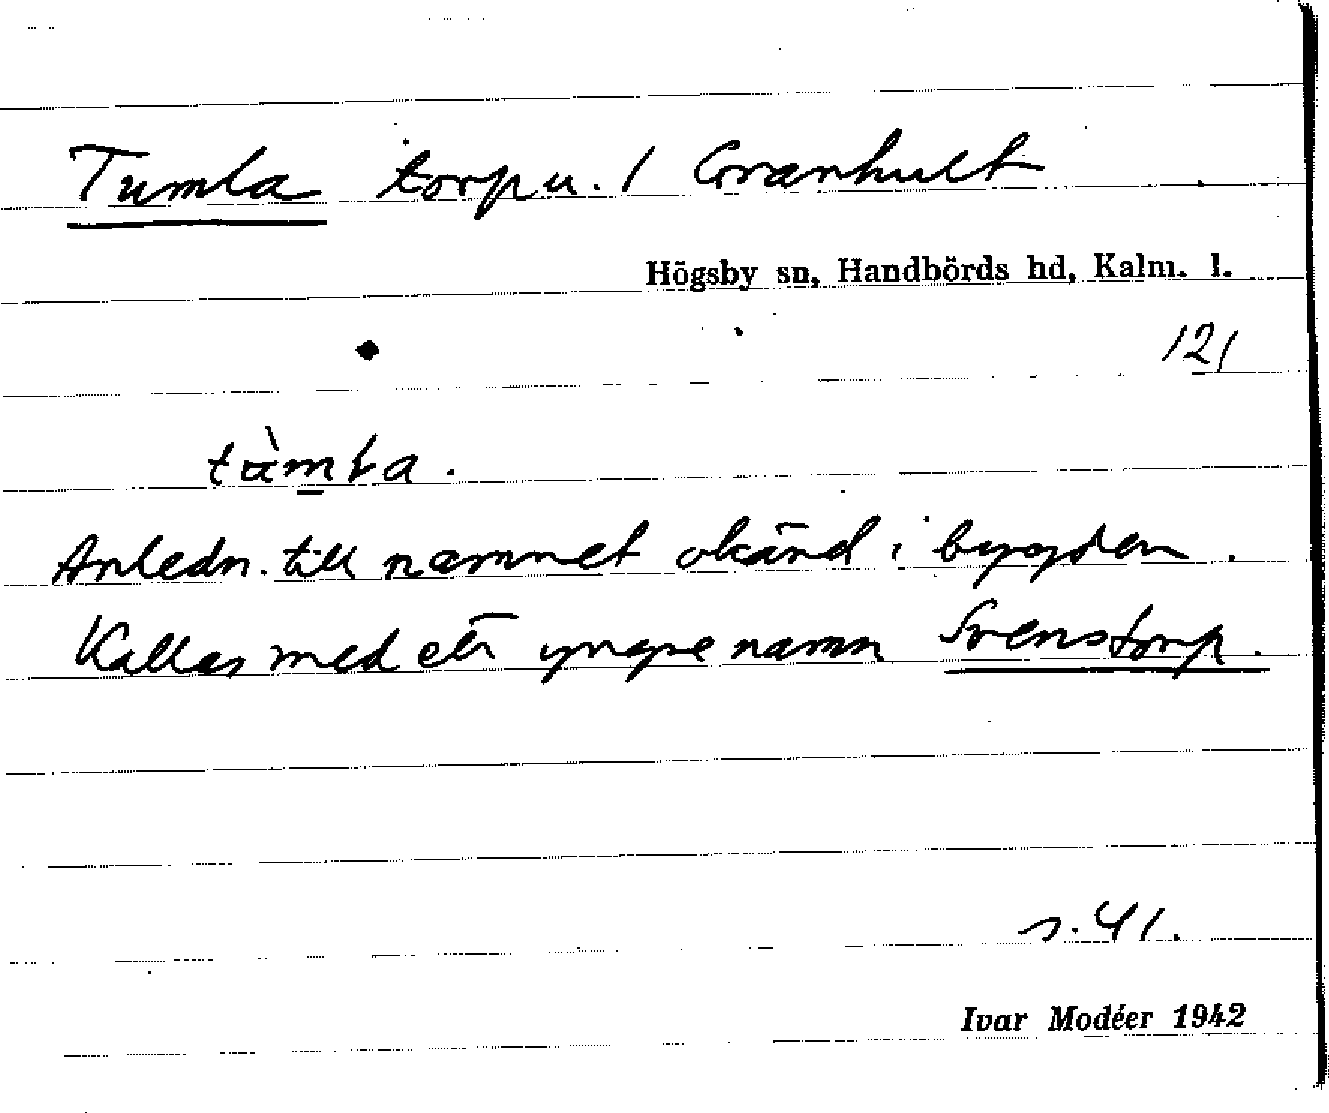 Tumla torp u. / Granhult
Högsby sn, Handbörds hd, Kalm. l.
121
Anledn. till namnet okänd i bygden.
Kallas med ett yngre namn Svenstorp.
s. 41.
Ivar Modéer 1942